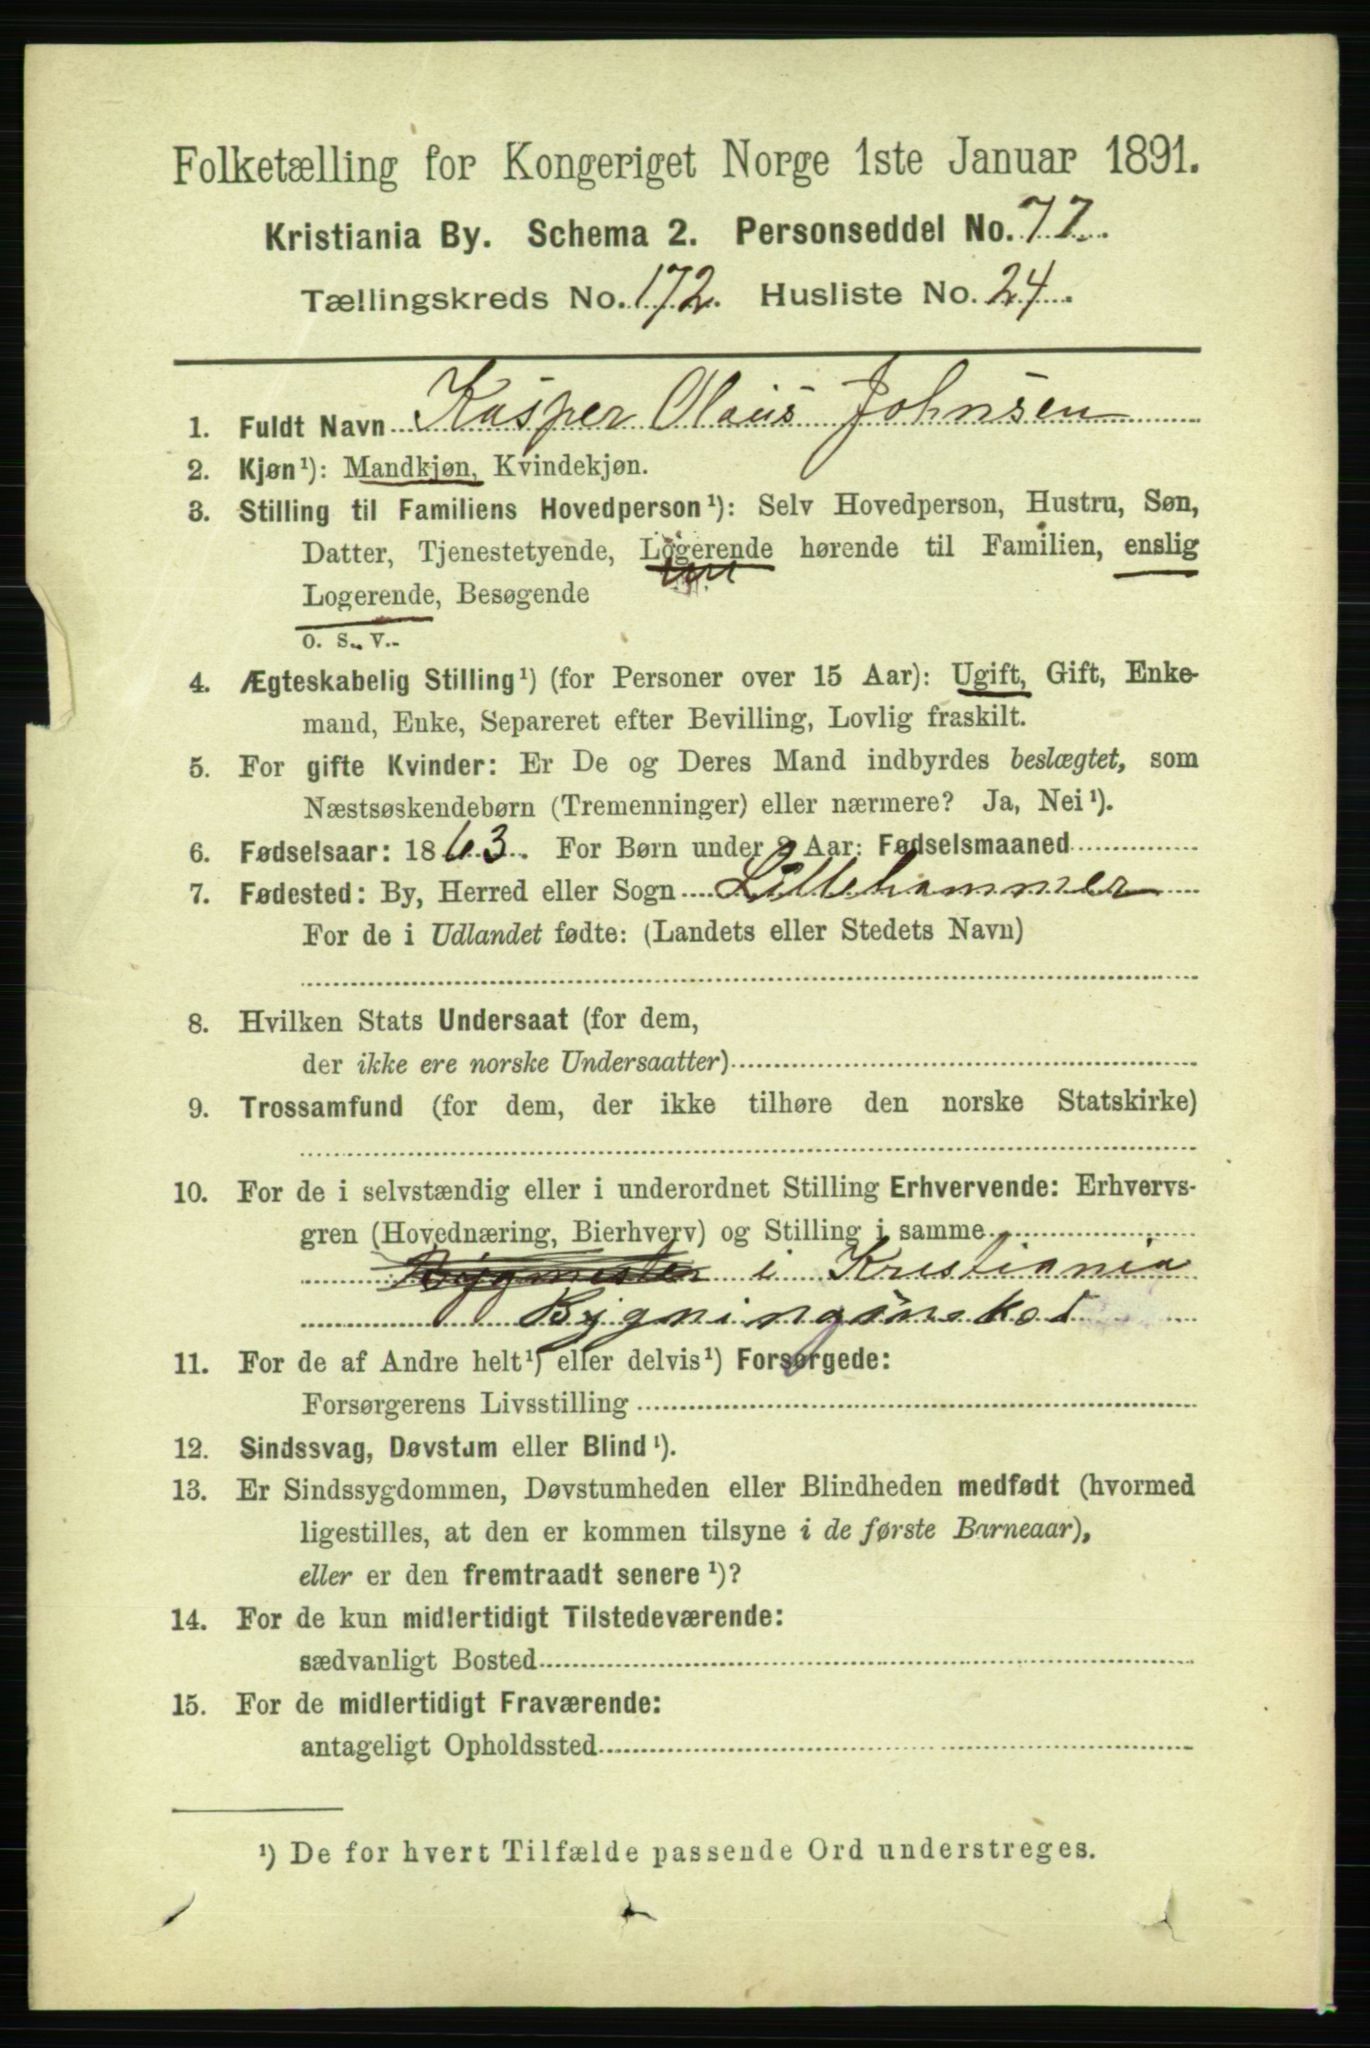 Folketælling for Kongeriget Norge 1ste Januar 1891.
Kristiania By. Schema 2. Personseddel No. 77.
Tællingskreds No. 172. Husliste No. 24.
1. Fuldt Navn Kasper Olaus Johnsen
2. Kjøn¹): Mandkjøn, Kvindekjøn.
3. Stilling til Familiens Hovedperson¹): Selv Hovedperson, Hustru, Søn,
Datter, Tjenestetyende, Logerende hørende til Familien, enslig
Logerende, Besøgende
o. s. v.
4. Ægteskabelig Stilling¹) (for Personer over 15 Aar): Ugift, Gift, Enke-
mand, Enke, Separeret efter Bevilling, Lovlig fraskilt.
5. For gifte Kvinder: Er De og Deres Mand indbyrdes beslægtet, som
Næstsøskendebørn (Tremenninger) eller nærmere? Ja, Nei¹).
6. Fødselsaar: 1863. For Børn under 2 Aar: Fødselsmaaned
7. Fødested: By, Herred eller Sogn Lillehammer
For de i Udlandet fødte: (Landets eller Stedets Navn)
8. Hvilken Stats Undersaat (for dem,
der ikke ere norske Undersaatter)
9. Trossamfund (for dem, der ikke tilhøre den norske Statskirke)
10. For de i selvstændig eller i underordnet Stilling Erhvervende: Erhvervs-
gren (Hovednæring, Bierhverv) og Stilling i samme
Bygmester i Kristiania
11. For de af Andre helt¹) eller delvis¹) Forsørgede:
Forsørgerens Livsstilling
12. Sindssvag, Døvstum eller Blind¹).
13. Er Sindssygdommen, Døvstumheden eller Blindheden medfødt (hvormed
ligestilles, at den er kommen tilsyne i de første Barneaar),
eller er den fremtraadt senere¹)?
14. For de kun midlertidigt Tilstedeværende:
sædvanligt Bosted
15. For de midlertidigt Fraværende:
antageligt Opholdssted
¹) De for hvert Tilfælde passende Ord understreges.